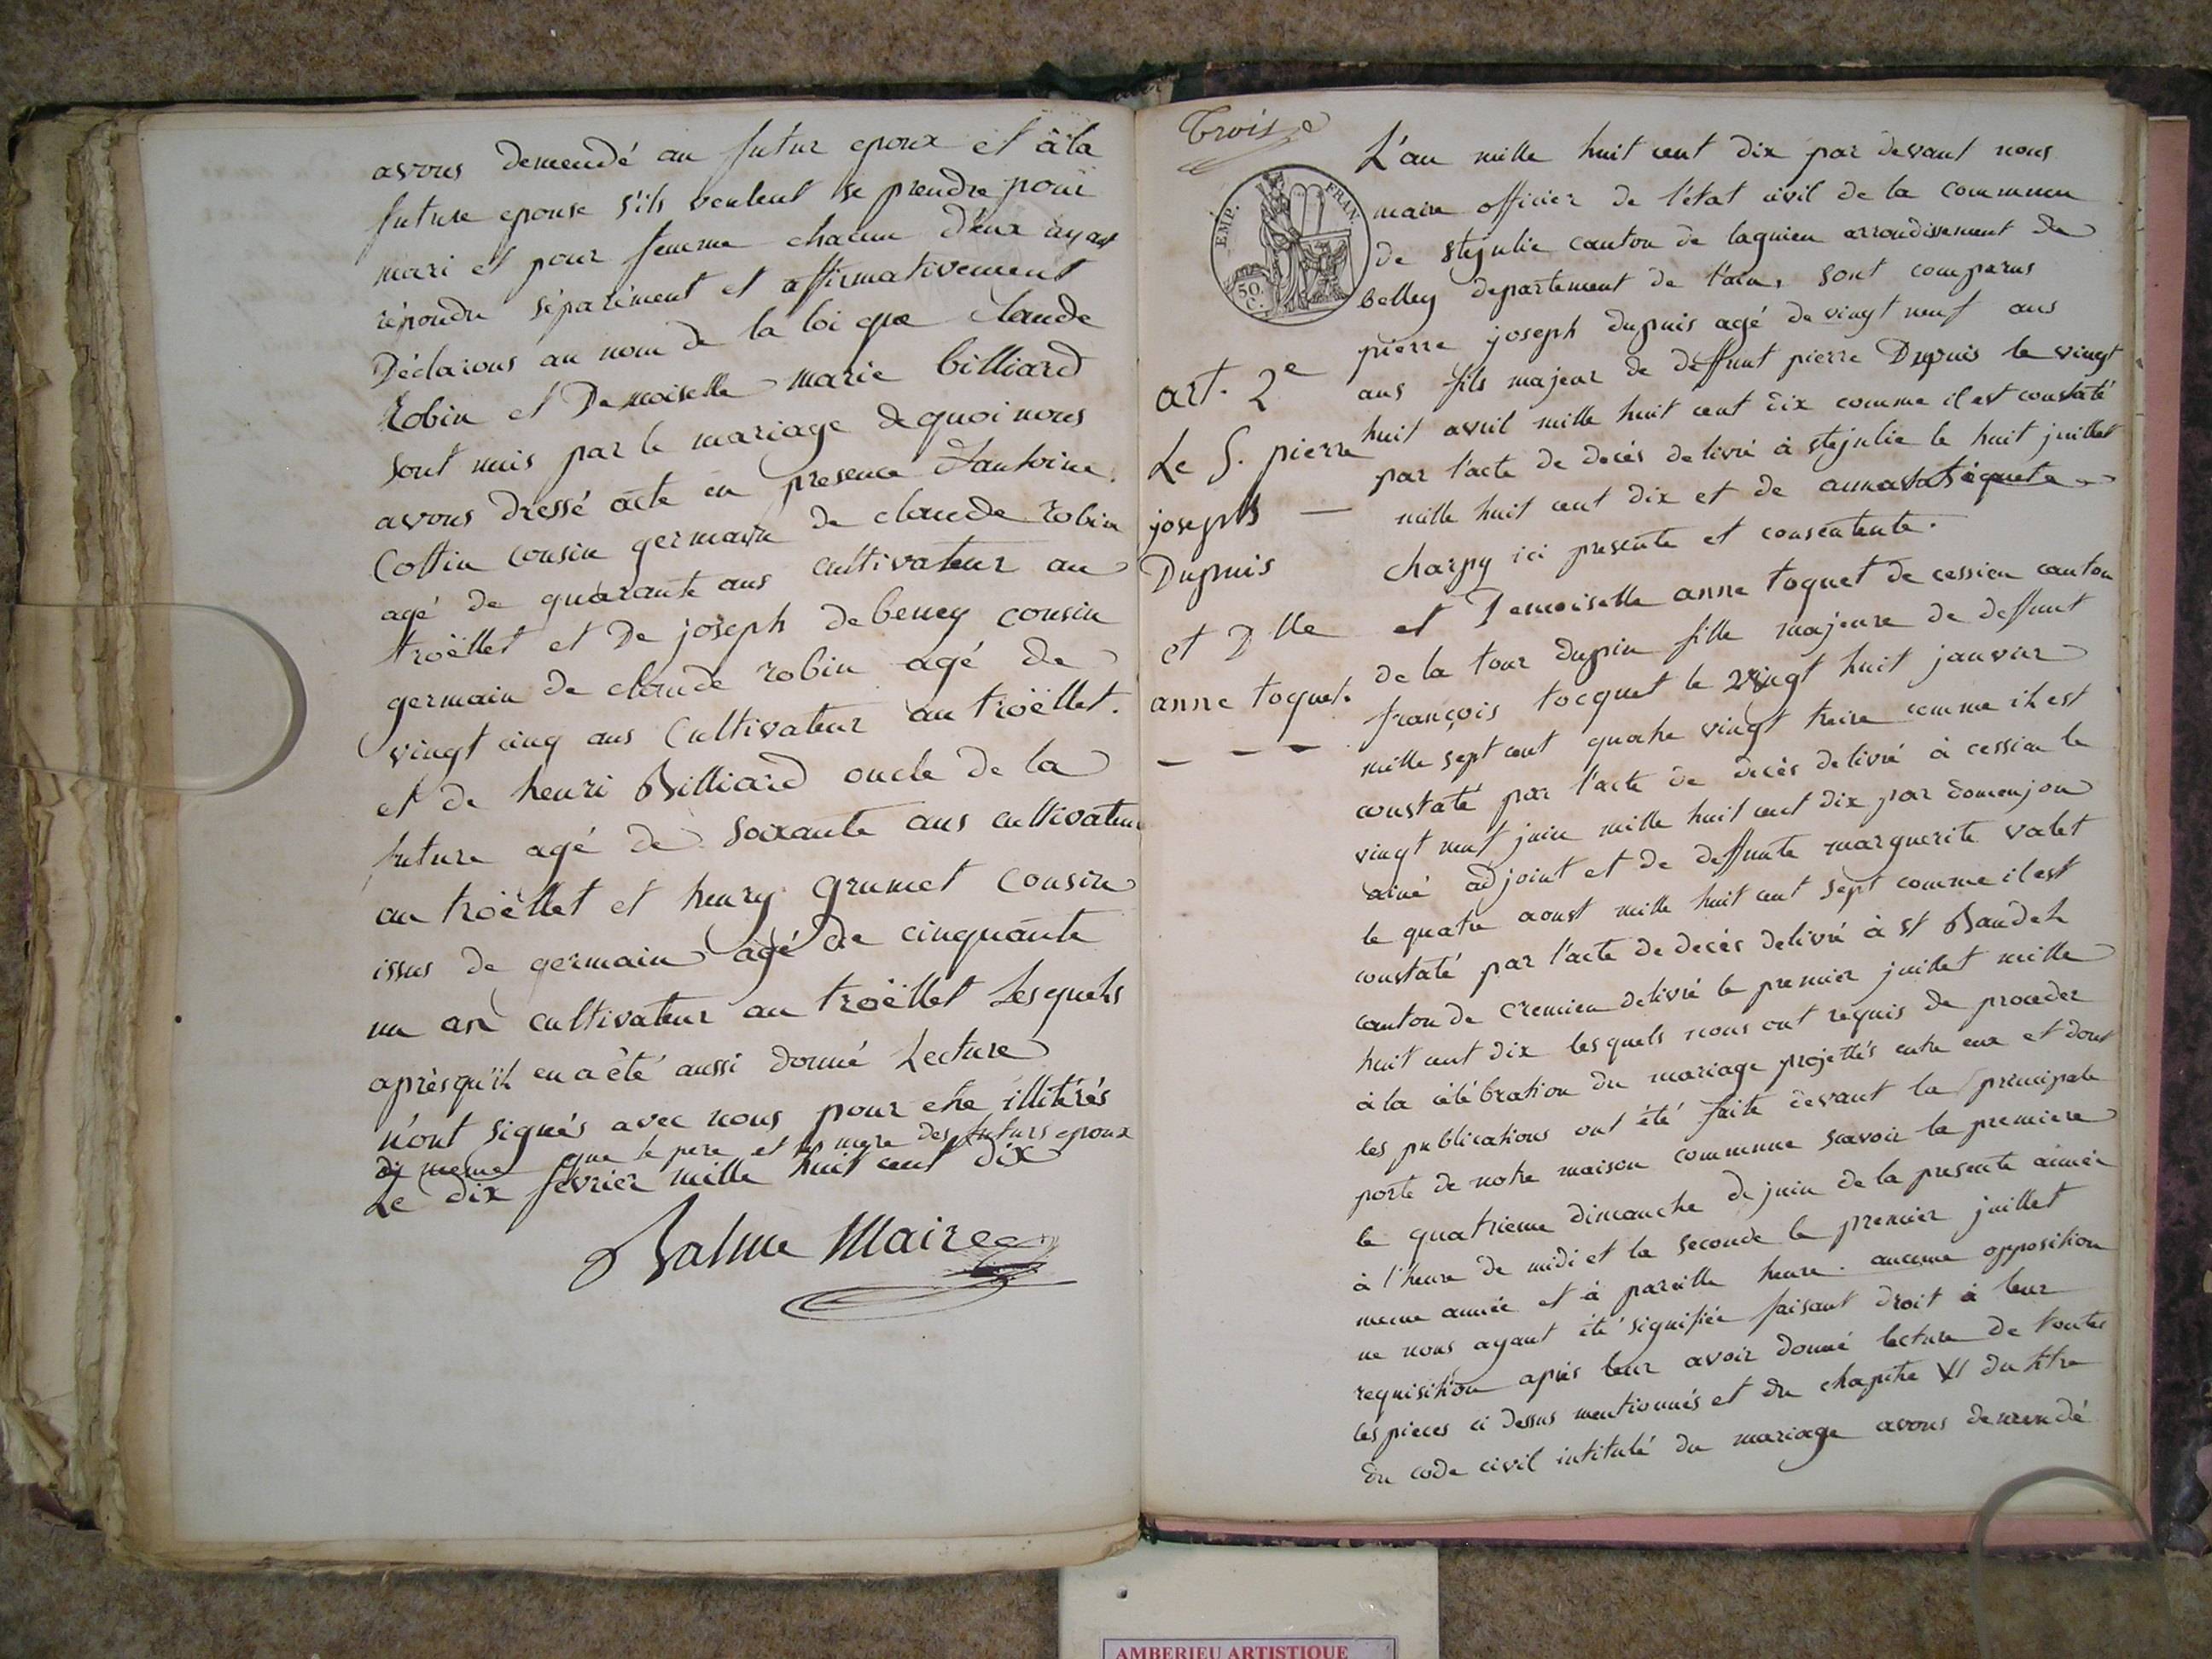 avons demendé au futur epoux et àla
future epouse s'ils veulent se prendre pour
mari et pour femme chacun d'eux ayant
répondu séparément et affirmativement
Déclarons au nom de la loi que claude
Robin et Demoiselle marie billiard
sont unis par le mariage dequoi nous
avons dressé acte en presence d'antoine
Cottin cousin germain de claude robin
agé de quarante ans cultivateur au
troëllet et De joseph debeney cousin
germain de claude robin agé de
vingt cinq ans Cultivateur au troëllet.
et de henri Billiard oncle de la
future agé de soixante ans cultivateur
au troëllet et henry grumet cousin
issus de germain agé de cinquante
un an cultivateur au troëllet Lesquels
aprèsqu'il en a été aussi donné Lecture
n'ont signés avec nous pour etre illitérés
de meme que le pere et la mere des futurs epoux
Le dix fevrier mille huit cent dix
Balme Maire
Trois
EMP. FRAN.
50. C.
art. 2e
Le S. pierre
joseph —
Dupuis
et Dlle
anne toquet.
— — —
L'an mille huit cent dix par devant nous
maire officier de l'état civil de la commune
de stejulie canton de lagnieu arrondissement de
belley departement de l'ain, sont comparus
pierre joseph dupuis agé de vingt neuf ans
ans fils majeur de deffunt pierre Dupuis le vingt
huit avril mille huit cent dix comme il est constaté
par l'acte de decès delivré à stejulie le huit juillet
mille huit cent dix et de
charpy ici presente et consentente.
et Demoiselle anne toquet de cessieu canton
de la tour dupin fille majeure de deffunt
françois tocquet le vingt huit janvier
mille sept cent quatre vingt treize comme il est
constaté par l'acte de decès delivré à cessieu le
vingt neuf juin mille huit cent dix par domenjon
ainé adjoint et de deffunte marguerite valet
le quatre aoust mille huit cent sept comme il est
constaté par l'acte de decès delivré à st Baudel
canton de Cremieu delivré le premier juillet mille
huit cent dix lesquels nous ont requis de proceder
à la célébration du mariage projettés entre eux et dont
les publications ont été faite devant la principale
porte de notre maison commune scavoir la premiere
le quatrieme dimanche de juin de la presente année
à l'heure de midi et la seconde le premier juillet
meme année et à pareille heure. aucune opposition
ne nous ayant été signifiée faisant droit à leur
requisition après leur avoir donné lecture de toutes
les pieces ci dessus mentionnés et du chapitre VI du titre
du code civil intitulé du mariage avons demendé
AMBERIEU ARTISTIQUE